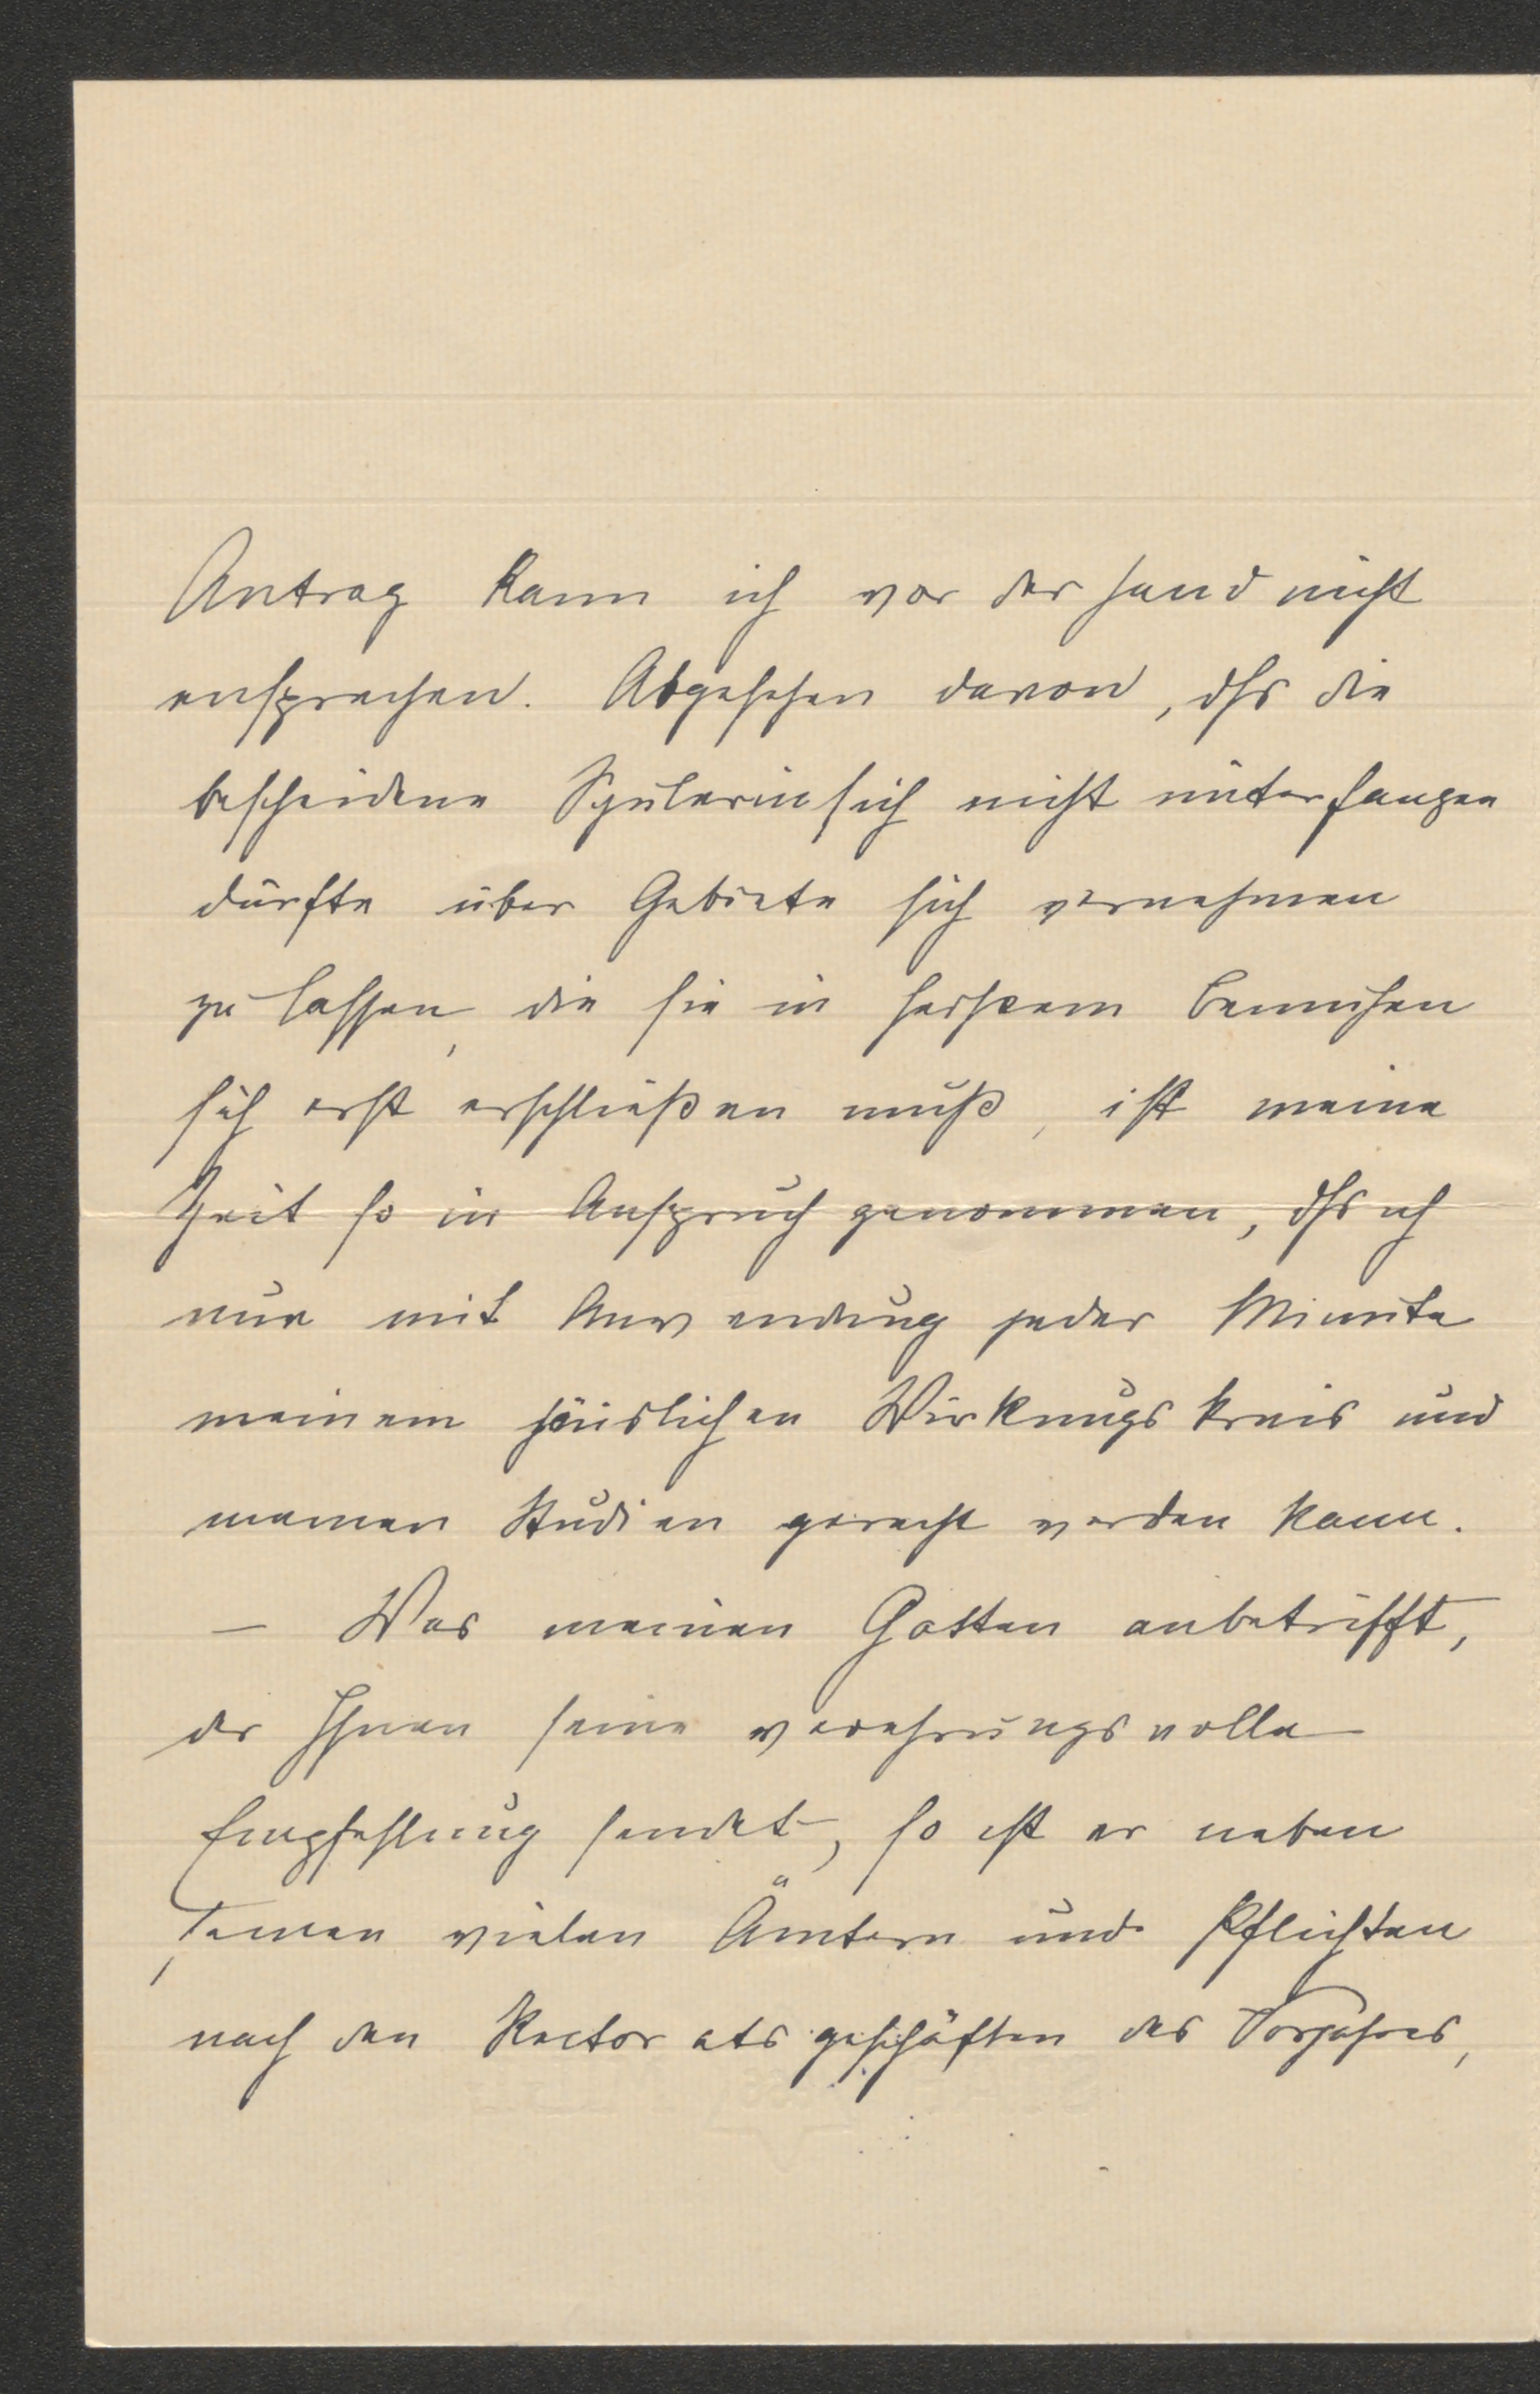 Antrag kann ich vor der Hand nicht
ensprechen. Abgesehen davon, dſs die
bescheidene Schülerin sich nicht unterfangen
dürfte über Gebiete sich vernehmen
zu lassen, die sie in heißem Bemühen
sich erst erschließen muß, ist meine
Zeit so in Anspruch genommen, dſs ich
nur mit Anwendung jeder Minute
meinem häuslichen Wirkungskreis und
meinen Studien gerecht werden kann.
– Was meinen Gatten anbetrifft,
der Ihnen seine verehrungsvolle
Empfehlung sendet, so ist er neben
seinen vielen Ämtern und Pflichten
nach den Rectoratsgeschäften des Vorjahres,